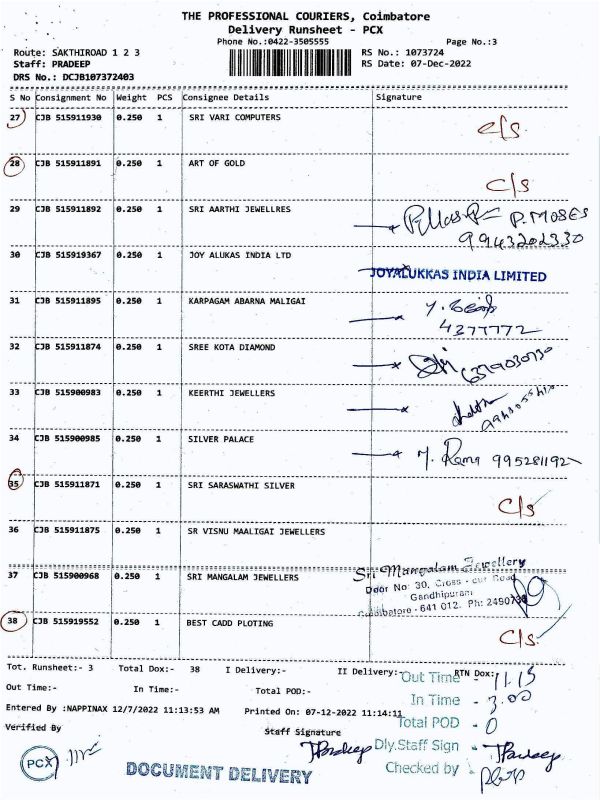 THE PROFESSIONAL COURIERS, Coimbatore
Delivery Runsheet - PCX
Phone No.:0422-3505555 Page No.:3
Route: SAKTHIROAD 1 2 3 RS No.: 1073724
Staff: PRADEEP RS Date: 07-Dec-2022
DRS No.: DCJB107372403
S No Consignment No Weight PCS Consignee Details Signature
27 CJB 515911930 0.250 1 SRI VARI COMPUTERS c/s
28 CJB 515911891 0.250 1 ART OF GOLD c/s
29 CJB 515911892 0.250 1 SRI AARTHI JEWELLRES P. MOSES
9943202330
30 CJB 515919367 0.250 1 JOY ALUKAS INDIA LTD
JOYALUKKAS INDIA LIMITED
31 CJB 515911895 0.250 1 KARPAGAM ABARNA MALIGAI
4377772
32 CJB 515911874 0.250 1 SREE KOTA DIAMOND
33 CJB 515900983 0.250 1 KEERTHI JEWELLERS
34 CJB 515900985 0.250 1 SILVER PALACE M. Rama 995281192
35 CJB 515911871 0.250 1 SRI SARASWATHI SILVER c/s
36 CJB 515911875 0.250 1 SR VISNU MAALIGAI JEWELLERS
Sri Mangalam Jewellery
37 CJB 515900968 0.250 1 SRI MANGALAM JEWELLERS
Door No: 30, Cross - cut Road
Gandhipuram
Coimbatore - 641 012. Ph: 2490
38 CJB 515919552 0.250 1 BEST CADD PLOTING c/s
Tot. Runsheet:- 3 Total Dox:- 38 I Delivery:- II Delivery:- RTN Dox:
Out Time - 11.15
Out Time:- In Time:- Total POD:-
In Time - 3.00
Entered By :NAPPINAX 12/7/2022 11:13:53 AM Printed On: 07-12-2022 11:14:11
Total POD - 0
Verified By Staff Signature
Dly.Staff Sign - TPradeep
TPradeep
PCX
Checked by -
DOCUMENT DELIVERY